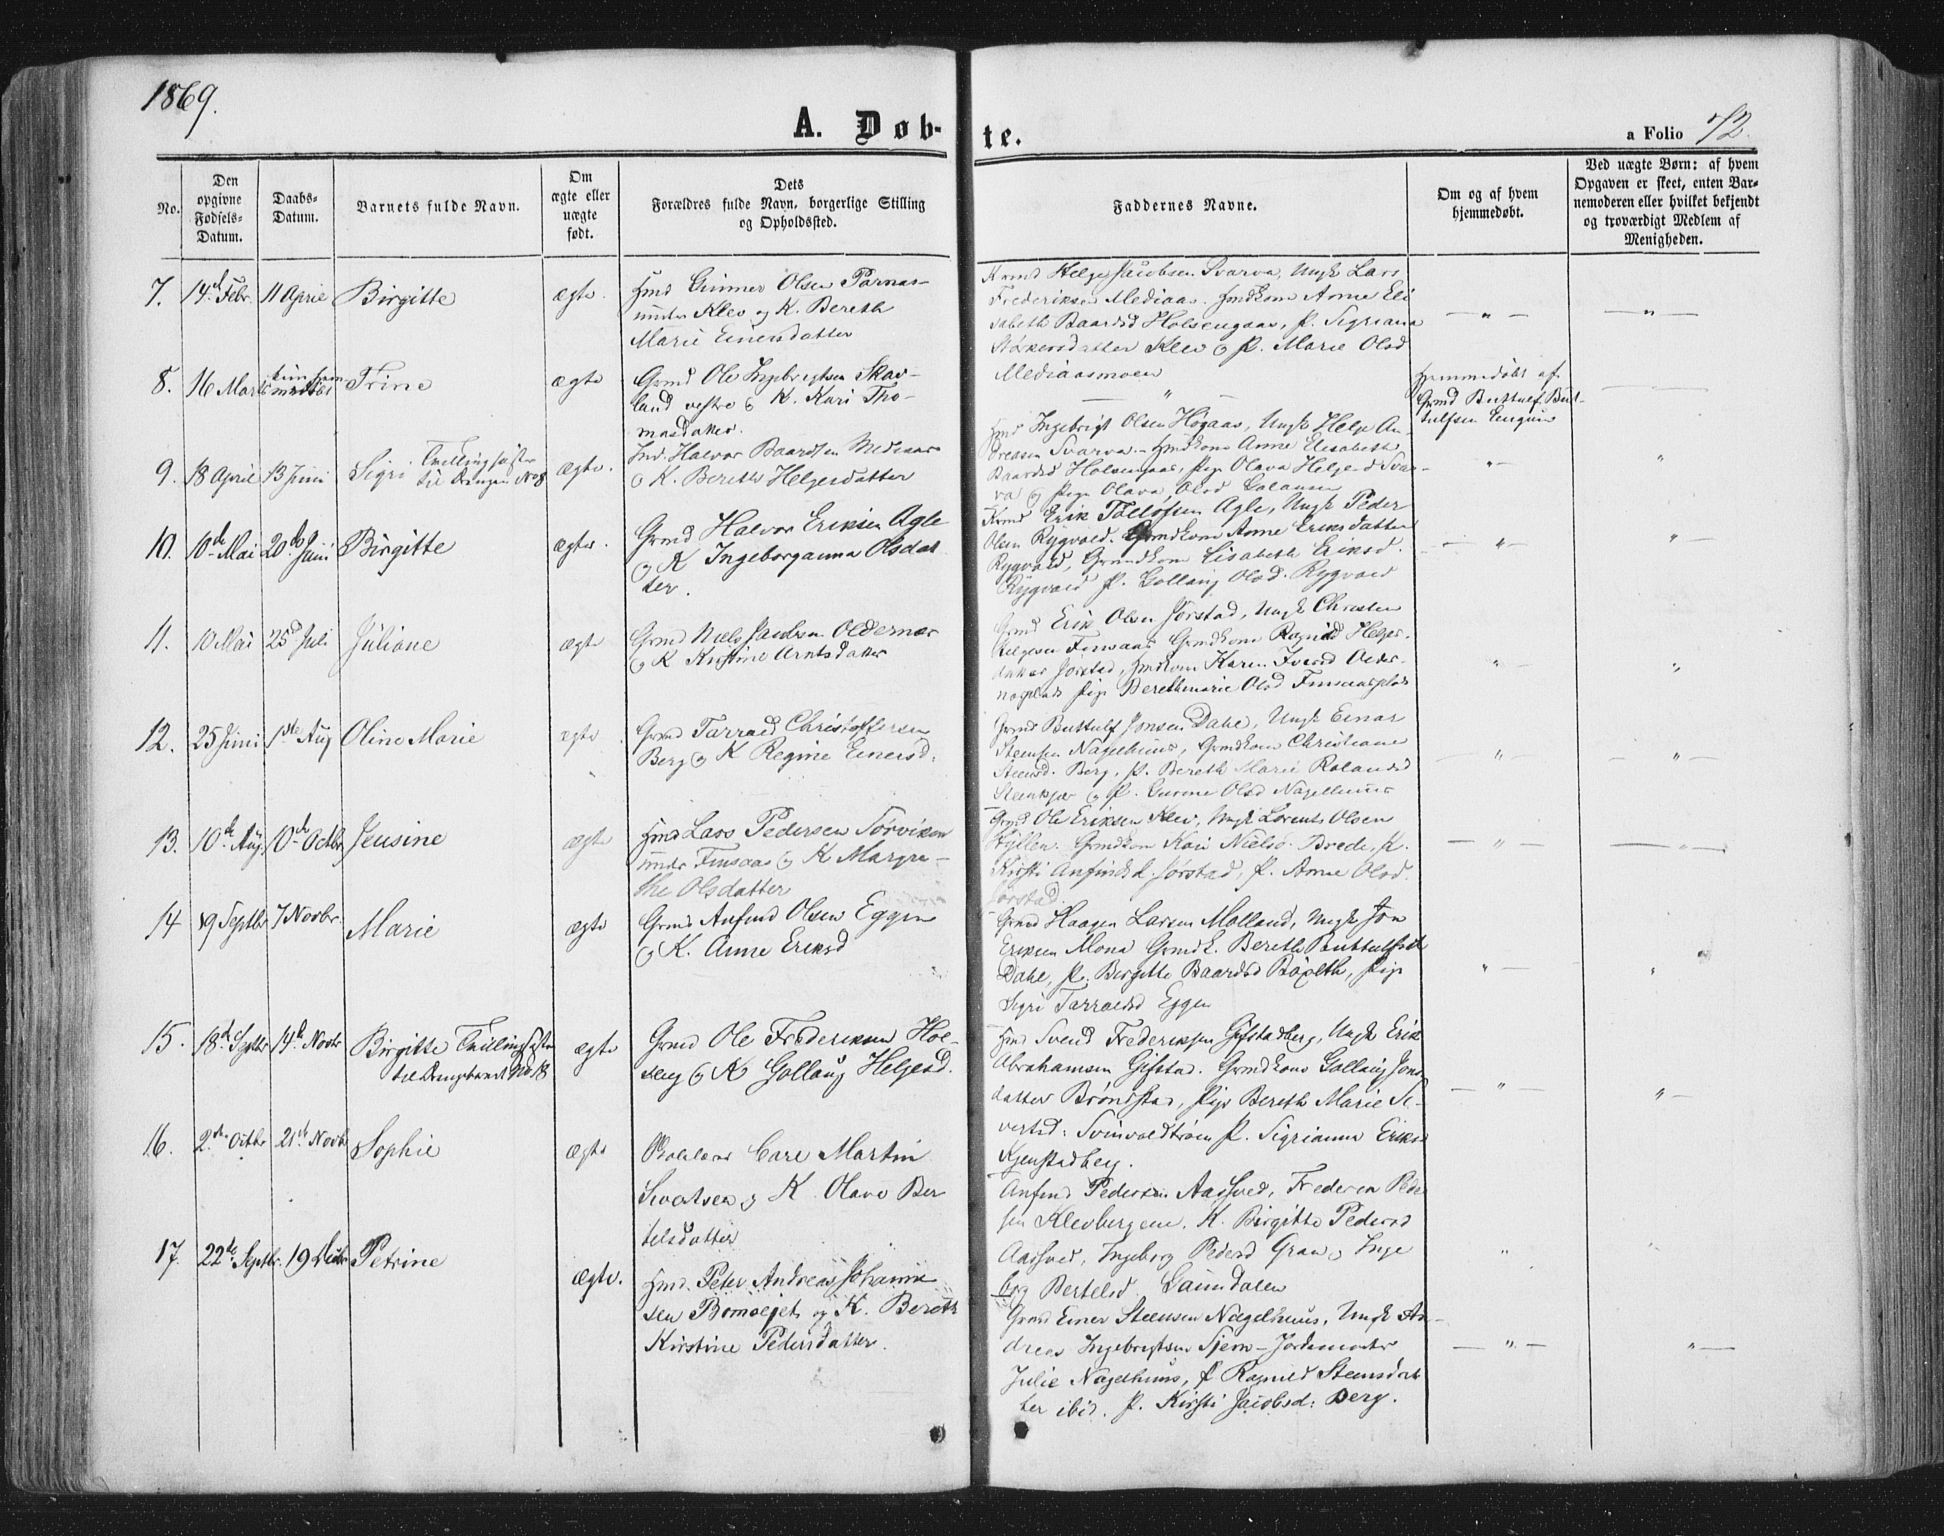 1869.
A. Døb-
te.
a Folio 72.
No.
Den
opgivne
Fødsels-
Datum.
Daabs-
Datum.
Barnets fulde Navn.
Om
ægte eller
uægte
født.
Dets
Forældres fulde Navn, borgerlige Stilling
og Opholdssted.
Faddernes Navne.
Om og af hvem
hjemmedøbt.
Ved uægte Børn: af hvem
Opgaven er skeet, enten Bar-
nemoderen eller hvilket bekjendt
og troværdigt Medlem af
Menigheden.
7. 14d Febr. 11 April Birgitte ægte.
Hmd Einner Olsen Parnas-
under Klev og K. Bereth
Marie Einersdatter
Krmd Helge Jacobsen Svarva, Ungk Lars
Frederiksen Mediaas. Hmdkone Anne Eli
sabeth Baardsd Holsengaas, P. Sigriana
datter Klev og P. Marie Olsd
Mediaasmoen
8. 16 Marts Trine ægte
Grmd Ole Ingebrigtsen Skav-
land vestre og K. Kari Tho-
masdatter.
Hjemmedøbt af
Grmd Buttulf But-
tulfsen
9. 18 April 13 Juni Sigri Tvillingsøster
til Drengen No 8
ægte.
Ind. Halvor Baardsen Mediaas
og K. Bereth Helgesdatter
Hmd Ingebrigt Olsen Høgaas, Ungk Helge An-
dreasen Svarva. Hmdkone Anne Elisabeth
Baardsd Holsengaas, Pige Olava Helgesd Svar-
va og Pige Olava Olsd
10. 10de Mai 20de Juni Birgitte ægte.
Grmd Halvor Eriksen Agle
og K Ingeborganna Olsdat
ter.
Krmd Erik Tollofsen Agle, Ungk Peder
Olsen Rygvold. Grmdkone Anne Eriksdatter
Rygvold, Grmdkone Lisabeth Eriksd.
Rygvold P. Gollaug Olsd. Rygvold
11. 10 Mai 25d Juli Juliane ægte
Grmd Niels Jacobsen Oldernæs
og K Kristine Arntsdatter
Grmd Erik Olsen Jørstad, Ungk Christen
Helgesen Finsaas Grmdkone Ragnild Helges-
datter Jørstad, Hmdkone Karen Iversd Older-
næsplads Pige Berethmarie Olsd Finsaasplads
12. 25 Juni 1ste Aug Oline Marie ægte.
Grmd Tarrald Christoffersen
Berg og K Regine Einersd.
Grmd Buttulf Jonsen Dahl, Ungk Einar
Steensen Nagelhuus, Grmdkone Christiane
Steensd. Berg, P. Bereth Marie Rolandsd
Steenkjær og P. Gurine Olsd Nagelhuus
13. 10de Aug. 10de Octbr Jensine ægte
Hmd Lars Pedersen Sørviken
under Finsaas og K Margre-
the Olsdatter
Grmd Ole Eriksen Klev, Ungk Lorents Olsen
Hyllen. Grmdkone Kari Nielsd. Brede, K.
Kirsti Anfindsd. Jørstad, P. Anne Olsd
Jørstad.
14 19 Septbr 7 Novbr. Marie ægte
Grmd Anfind Olsen Eggen
og K. Anne Eriksd
Grmd Haagen Larsen Molland, Ungk Jon
Eriksen Mona Grmdk. Bereth Buttulfsdt
Dahl, P. Birgitte Baardsd Bøgleth, Pige
Sigri Tarraldsd Eggen
15. 18d Septbr 14d Novbr Birgitte Tvillingsøster
til Drengebarnet No. 18
ægte
Grmd Ole Frederiksen Hol-
seng og K Gollaug Helgesd.
Hmd Svend Frederiksen Gifstadberg, Ungk Erik
Abrahamsen Gifstad. Grmdkone Gollaug Jons
datter Brøndstad, Pige Bereth Marie Si-
vertsd: P. Sigrianna Eriksd
Agenstadberg.
16. 2den Octbr 21de Novbr Sophie ægte
Carl Martin
Sivertsen og K. Olave Ber
telsdatter
Anfind Pedersen Aasved, Frederik Peder
sen Klevbergene. K. Birgitte Pedersd
Aasved, Ingeborg Pedersd Gran og Inge
borg Bertelsd. Gaundalen
17. 22de Septbr. 19 Decbr Petrine ægte.
Hmd. Peter Andreas Johanne
sen Bomoejet og K. Bereth
Kirstine Pedersdatter.
Grmd Einer Steensen Nagelhuus, Ungk An-
dreas Ingebrigtsen Sjem - Jordemoder
Julie Nagelhuus, P Ragnild Steensdat
ter ibid. P. Kirsti Jacobsd: Berg.